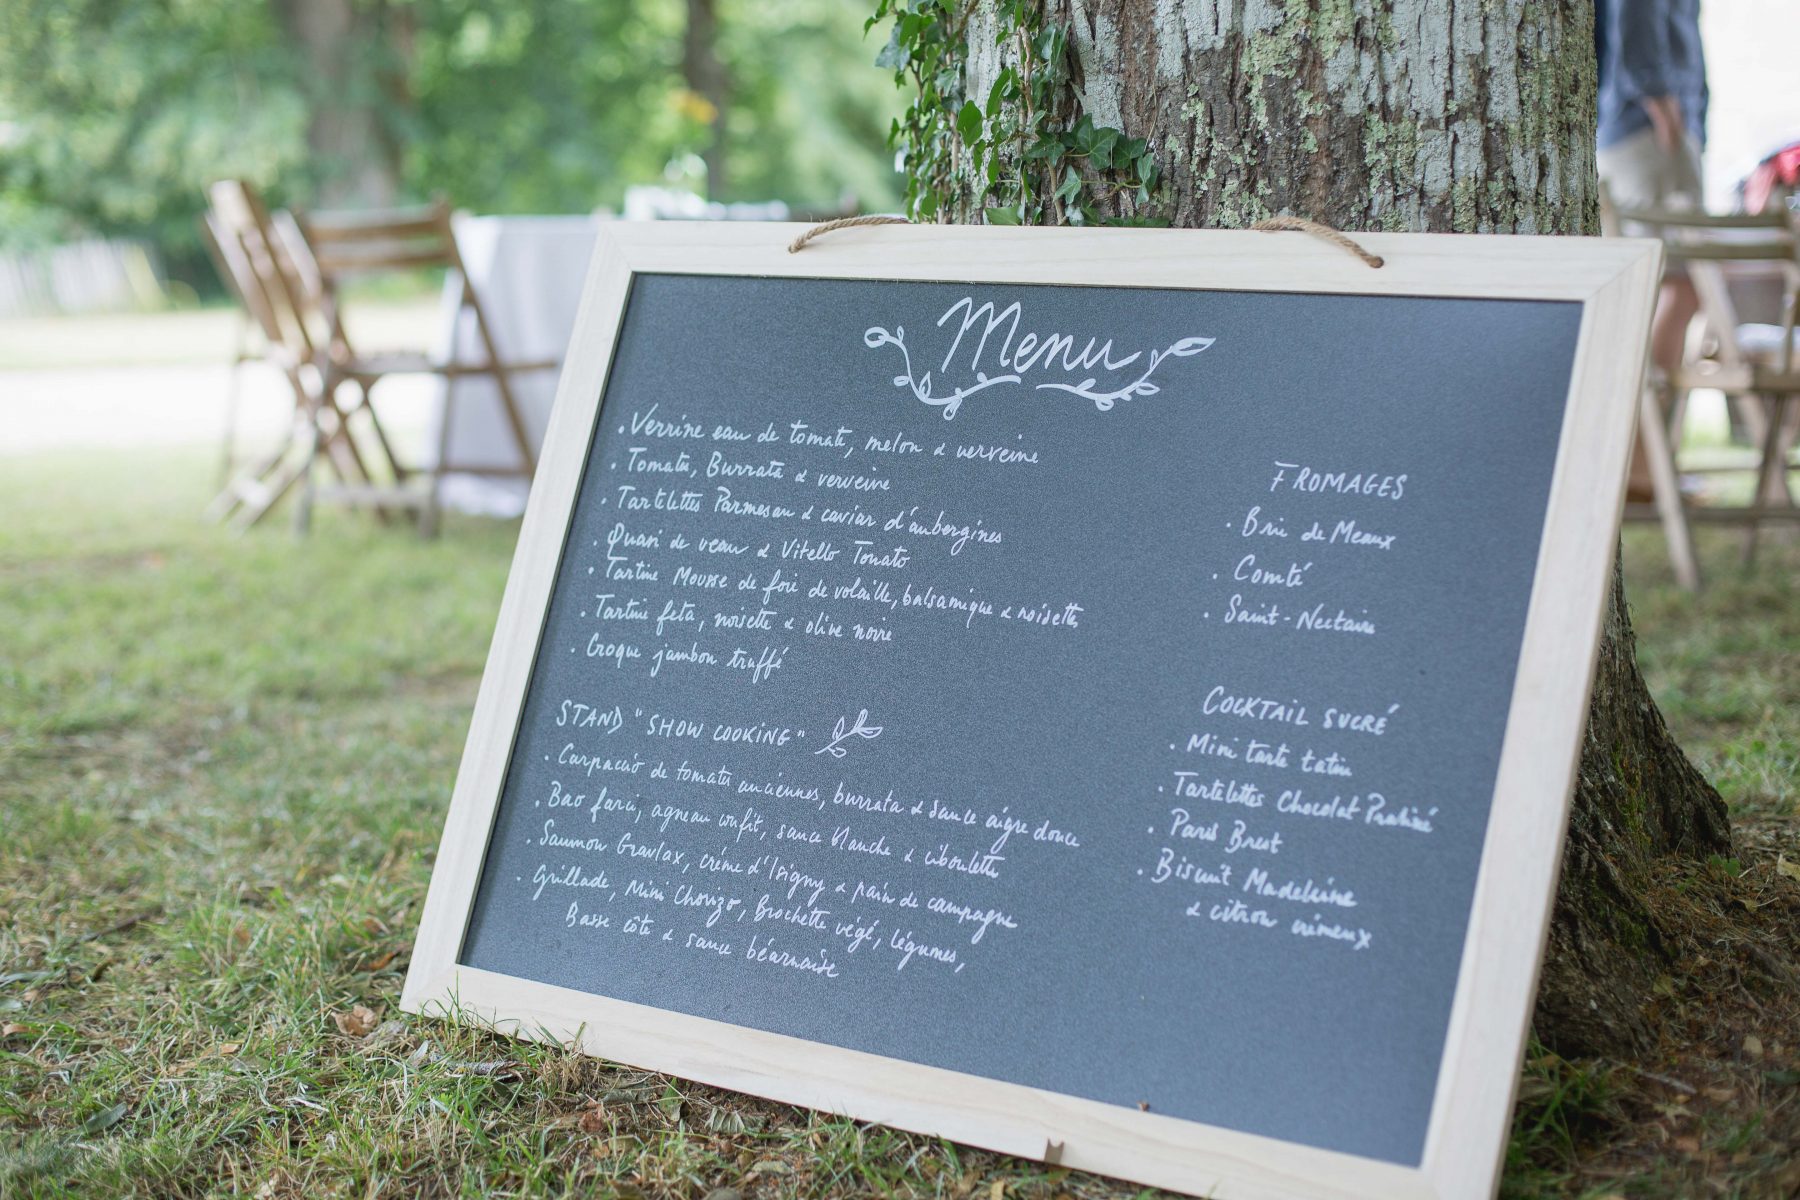 Menu
. Verrine eau de tomate, melon & verveine
. Tomates, Burrata & verveine
. Tartelettes Parmesan & caviar d'aubergines
. Quasi de veau & Vitello Tonato
. Tartine Mousse de foie de volaille, balsamique & noisettes
. Tartine feta, noisette & olive noire
. Croque jambon truffé
STAND "SHOW COOKING"
. Carpaccio de tomates anciennes, burrata & sauce aigre douce
. Bao farci, agneau confit, sauce blanche & ciboulette
. Saumon Gravlax, crème d'Isigny & pain de campagne
. Grillade, Mini Chorizo, Brochette végé, légumes,
Basse côte & sauce béarnaise
FROMAGES
. Brie de Meaux
. Comté
. Saint-Nectaire
COCKTAIL SUCRÉ
. Mini tarte tatin
. Tartelettes Chocolat Praliné
. Paris Brest
. Biscuit Madeleine
& citron crémeux